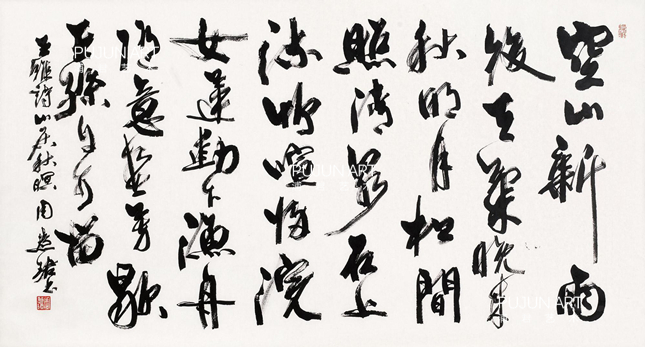 空山新雨
後天氣晚来
秋明月松間
照清泉石上
流竹喧歸浣
女蓮動下漁舟
隨意春芳歇
王孫自可留
王維詩山居秋暝 周
PUJUN ART
PUJUN ART
PUJUN ART